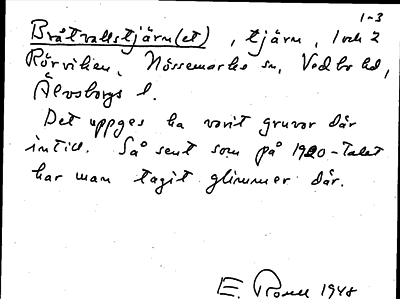 1-3
Bråtvallstjärn(et), tjärn, 1 och 2
Rörviken, Nössemarks sn, Vedbo hd,
Älvsborgs l.
Det uppges ha varit gruvor där
intill. Så sent som på 1920-talet
har man tagit glimmer där.
E. 1948